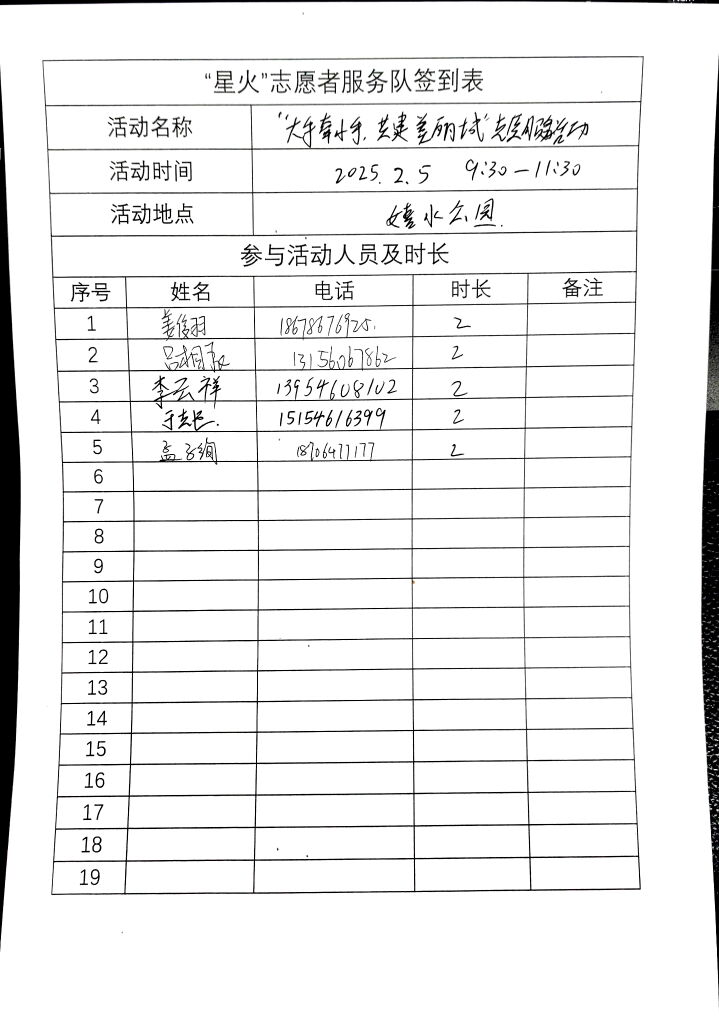 “星火”志愿者服务队签到表
活动名称 “大手牵小手,共建美丽城”志愿服务活动
活动时间 2025.2.5 9:30—11:30
活动地点 嬉水公园.
参与活动人员及时长
序号 姓名 电话 时长 备注
1 姜俊羽 18678676925. 2
2 13156067862 2
3 李云祥 13954608102 2
4 15154616399 2
5 孟子绚 18706477177 2
6
7
8
9
10
11
12
13
14
15
16
17
18
19